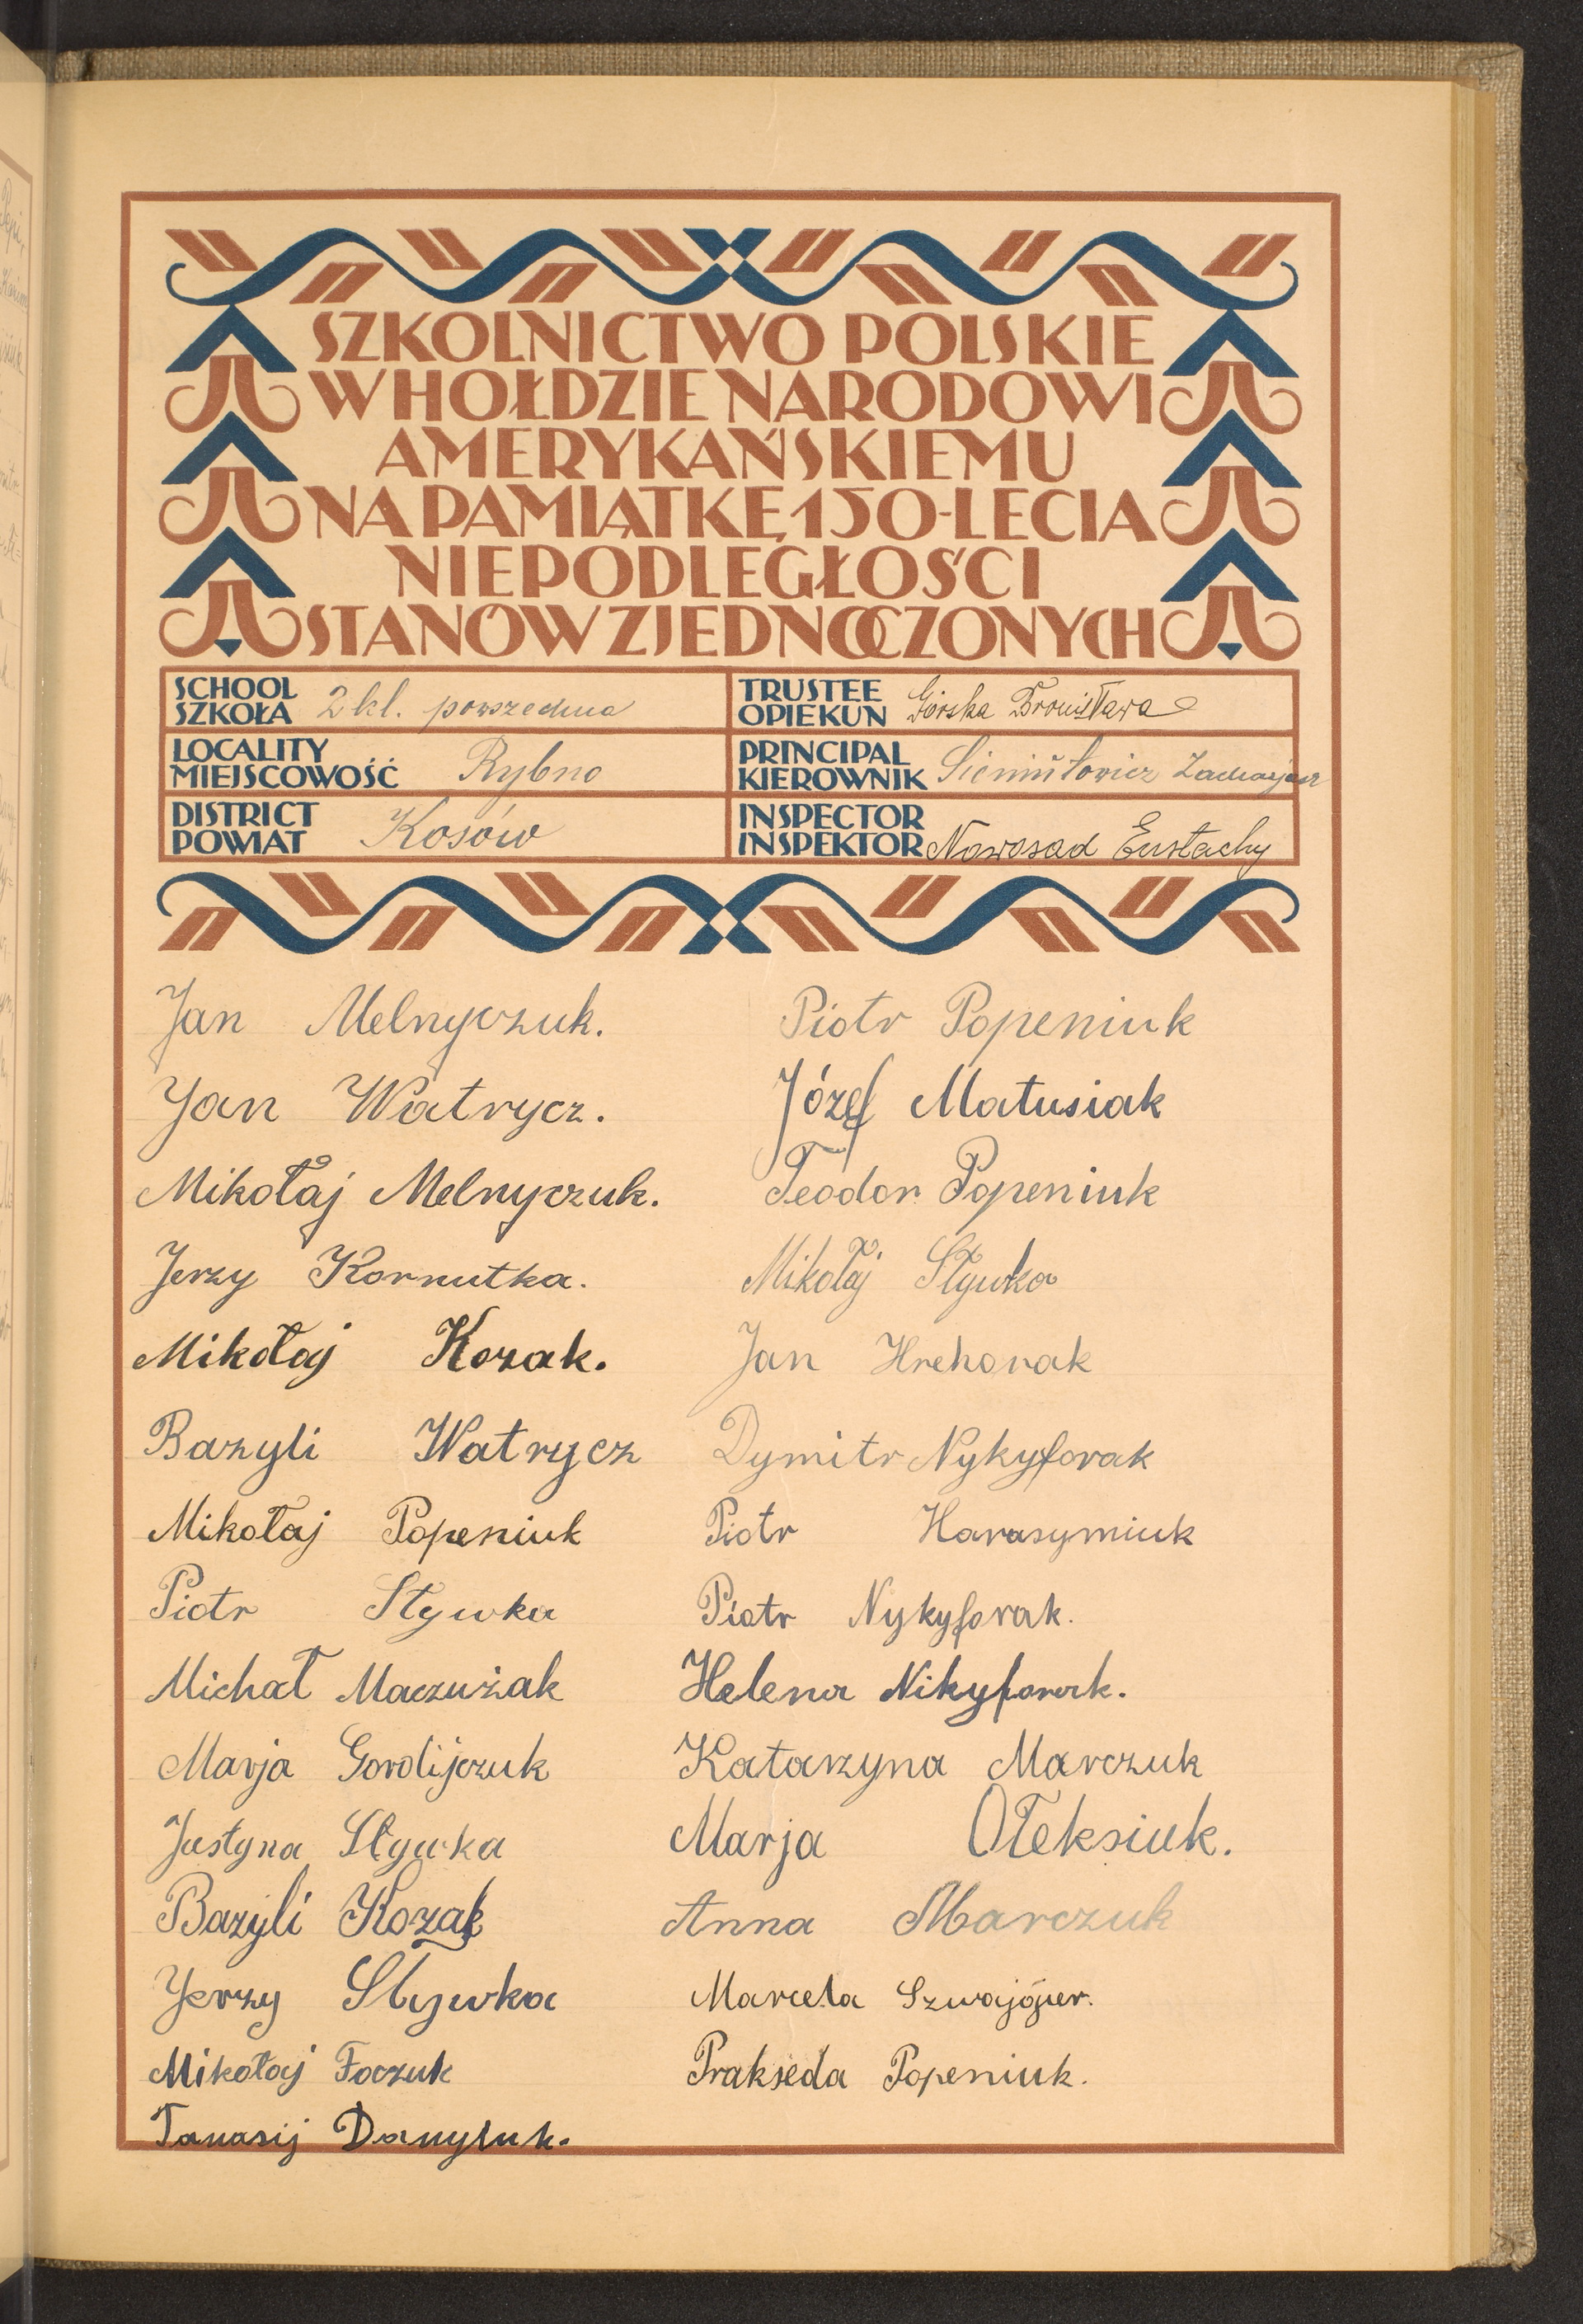 SZKOLNICTWO POLSKIE
W HOŁDZIE NARODOWI
AMERYKAŃSKIEMU
NA PAMIĄTKĘ 150-LECIA
NIEPODLEGŁOŚCI
STANÓW ZJEDNOCZONYCH
SCHOOL
SZKOŁA 2 kl. powszechna
TRUSTEE
OPIEKUN Górska Bronisława
LOCALITY
MIEJSCOWOŚĆ Rybno
PRINCIPAL
KIEROWNIK Zacharjasz
DISTRICT
POWIAT Kosów
INSPECTOR
INSPEKTOR Nowosad Eustachy
Jan Melnyczuk.
Jan Watrycz.
Mikołaj Melnyczuk.
Jerzy Kornutka.
Mikołaj Kozak.
Bazyli Watrycz
Mikołaj Popeniuk
Piotr Stywka
Michał Maczużak
Marja Gordijczuk
Justyna Stywka
Bazyli Kozak
Jerzy Stywka
Mikołaj Foczuk
Tanasij Danyluk.
Piotr Popeniuk
Józef Matusiak
Teodor Popeniuk
Mikołaj Stywka
Jan Hrehorak
Dymitr Nykyforak
Piotr Harasymiuk
Piotr Nykyforak.
Helena Nikyforak.
Katarzyna Marczuk
Marja Ołeksiuk.
Anna Marczuk
Marcela
Prakseda Popeniuk.